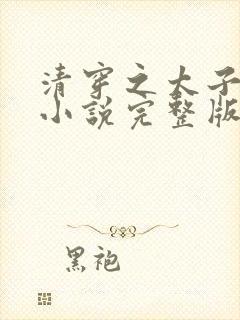 清穿之太子
小说完整版
黑袍